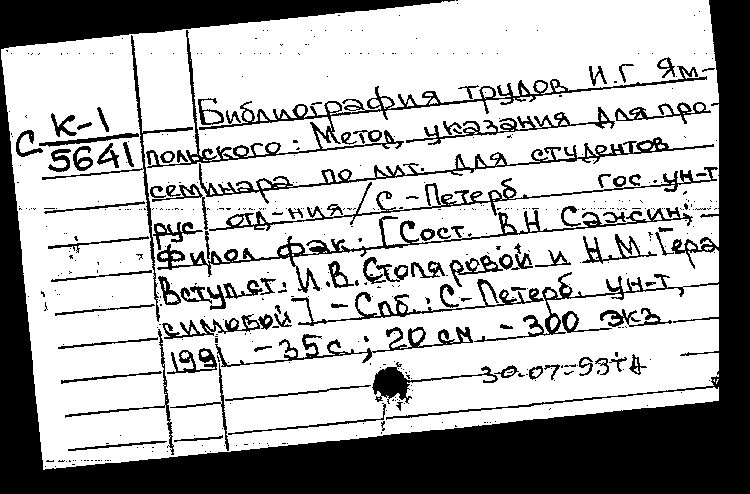 Библиография трудов И.Г. Ям-
С К-1
5641
польского: Метод. указания для про-
семинара по лит. для студентов
рус отд-ния / С.-Петерб. гос. ун-т
Филол фак; [Сост. В.Н. Сажин;
Вступ.ст. И.В. Столяровой и Н.М. Гера
симовой]. - Спб.: С-Петерб. ун-т,
1991. - 35 с.; 20 см. - 300 экз
30-07-93